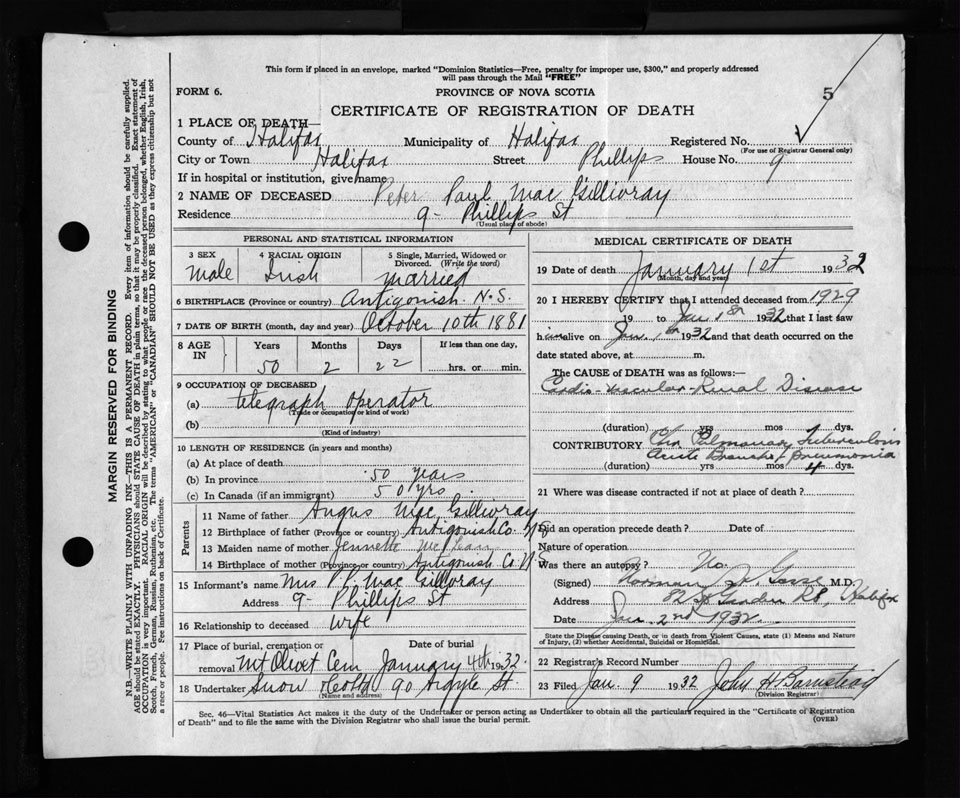 This form if placed in an envelope, marked "Dominion Statistics—Free, penalty for improper use, $300," and properly addressed
will pass through the Mail "FREE"
FORM 6.
PROVINCE OF NOVA SCOTIA
5
CERTIFICATE OF REGISTRATION OF DEATH
1 PLACE OF DEATH—
County of Halifax Municipality of Halifax Registered No.
(For use of Registrar General only)
City or Town Halifax Street Phillips House No. 9
If in hospital or institution, give name
2 NAME OF DECEASED Peter Paul MacGillivray
Residence 9- Phillips St
(Usual place of abode)
PERSONAL AND STATISTICAL INFORMATION
3 SEX 4 RACIAL ORIGIN 5 Single, Married, Widowed or
Divorced. (Write the word)
Male Irish married
6 BIRTHPLACE (Province or country) Antigonish N.S.
7 DATE OF BIRTH (month, day and year) October 10th 1881
8 AGE IN Years Months Days If less than one day,
50 2 22 hrs. or min.
9 OCCUPATION OF DECEASED
(a) telegraph operator
(Trade or occupation or kind of work)
(b)
(Kind of industry)
10 LENGTH OF RESIDENCE (in years and months)
(a) At place of death
(b) In province 50 years
(c) In Canada (if an immigrant) 50 yrs.
Parents
11 Name of father Angus MacGillivray
12 Birthplace of father (Province or country) Antigonish Co. N.S
13 Maiden name of mother Jennette
14 Birthplace of mother (Province or country) Antigonish Co. N.S
15 Informant's name Mrs P.P. MacGillivray
Address 9- Phillips St
16 Relationship to deceased wife
17 Place of burial, cremation or Date of burial
removal Mt Olivet Cem January 4th 1932.
18 Undertaker Snow & Co Ltd 90 Argyle St
(Name and address)
MEDICAL CERTIFICATE OF DEATH
19 Date of death January 1st 1932
(Month, day and year)
20 I HEREBY CERTIFY that I attended deceased from 1929
19 to Jan 1st 1932 that I last saw
him alive on Jan. 1st 1932 and that death occurred on the
date stated above, at m.
The CAUSE OF DEATH was as follows:
Cardio-Vascular-Renal Disease
(duration) yrs mos dys.
CONTRIBUTORY Chr Pulmonary Tuberculosis
Acute Broncho Pneumonia
(duration) yrs mos 4 dys.
21 Where was disease contracted if not at place of death?
Did an operation precede death? Date of
Nature of operation
Was there an autopsy? No.
(Signed) Norman H. Gosse M.D.
Address Halifax
Date Jan 2nd 1932
State the Disease causing Death, or in death from Violent Causes, state (1) Means and Nature
of Injury, (2) whether Accidental, Suicidal or Homicidal.
22 Registrar's Record Number
23 Filed Jan. 9 1932 John H Barnstead
(Division Registrar)
Sec. 46—Vital Statistics Act makes it the duty of the Undertaker or person acting as Undertaker to obtain all the particulars required in the "Certificate of Registration
of Death" and to file the same with the Division Registrar who shall issue the burial permit.
(OVER)
MARGIN RESERVED FOR BINDING
N.B.—WRITE PLAINLY WITH UNFADING INK—THIS IS A PERMANENT RECORD. Every item of information should be carefully supplied.
AGE should be stated EXACTLY. PHYSICIANS should STATE CAUSE OF DEATH in plain terms, so that it may be properly classified. Exact statement of
OCCUPATION is very important. RACIAL ORIGIN will be described by stating to what people or race the deceased person belonged, whether English, Irish,
Scotch, French, German, Russian, Ruthenian, etc. The terms "AMERICAN" or "CANADIAN" SHOULD NOT BE USED as they express citizenship but not
a race or people. Fee instructions on back of Certificate.